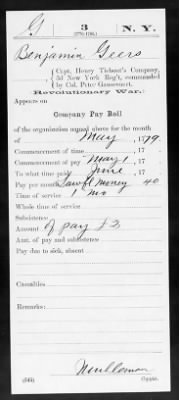 G | 3 | N. Y.
(1776-1783.)
Benjamin Geers
Capt. Henry Tiebout's Company,
3d New York Reg't, commanded
by Col. Peter Gansevoort.
Revolutionary War.
Appears on
Company Pay Roll
of the organization named above for the month
of May, 1779.
Commencement of time, 17 .
Commencement of pay May 1, 17 .
To what time paid June, 17 .
Pay per month Lawfl money 40
Time of service 1 mo
Subsistence
Amount of pay £2
Amt. of pay and subsistence
Pay due to sick, absent
Casualties
Remarks:
(546)
Copyist.